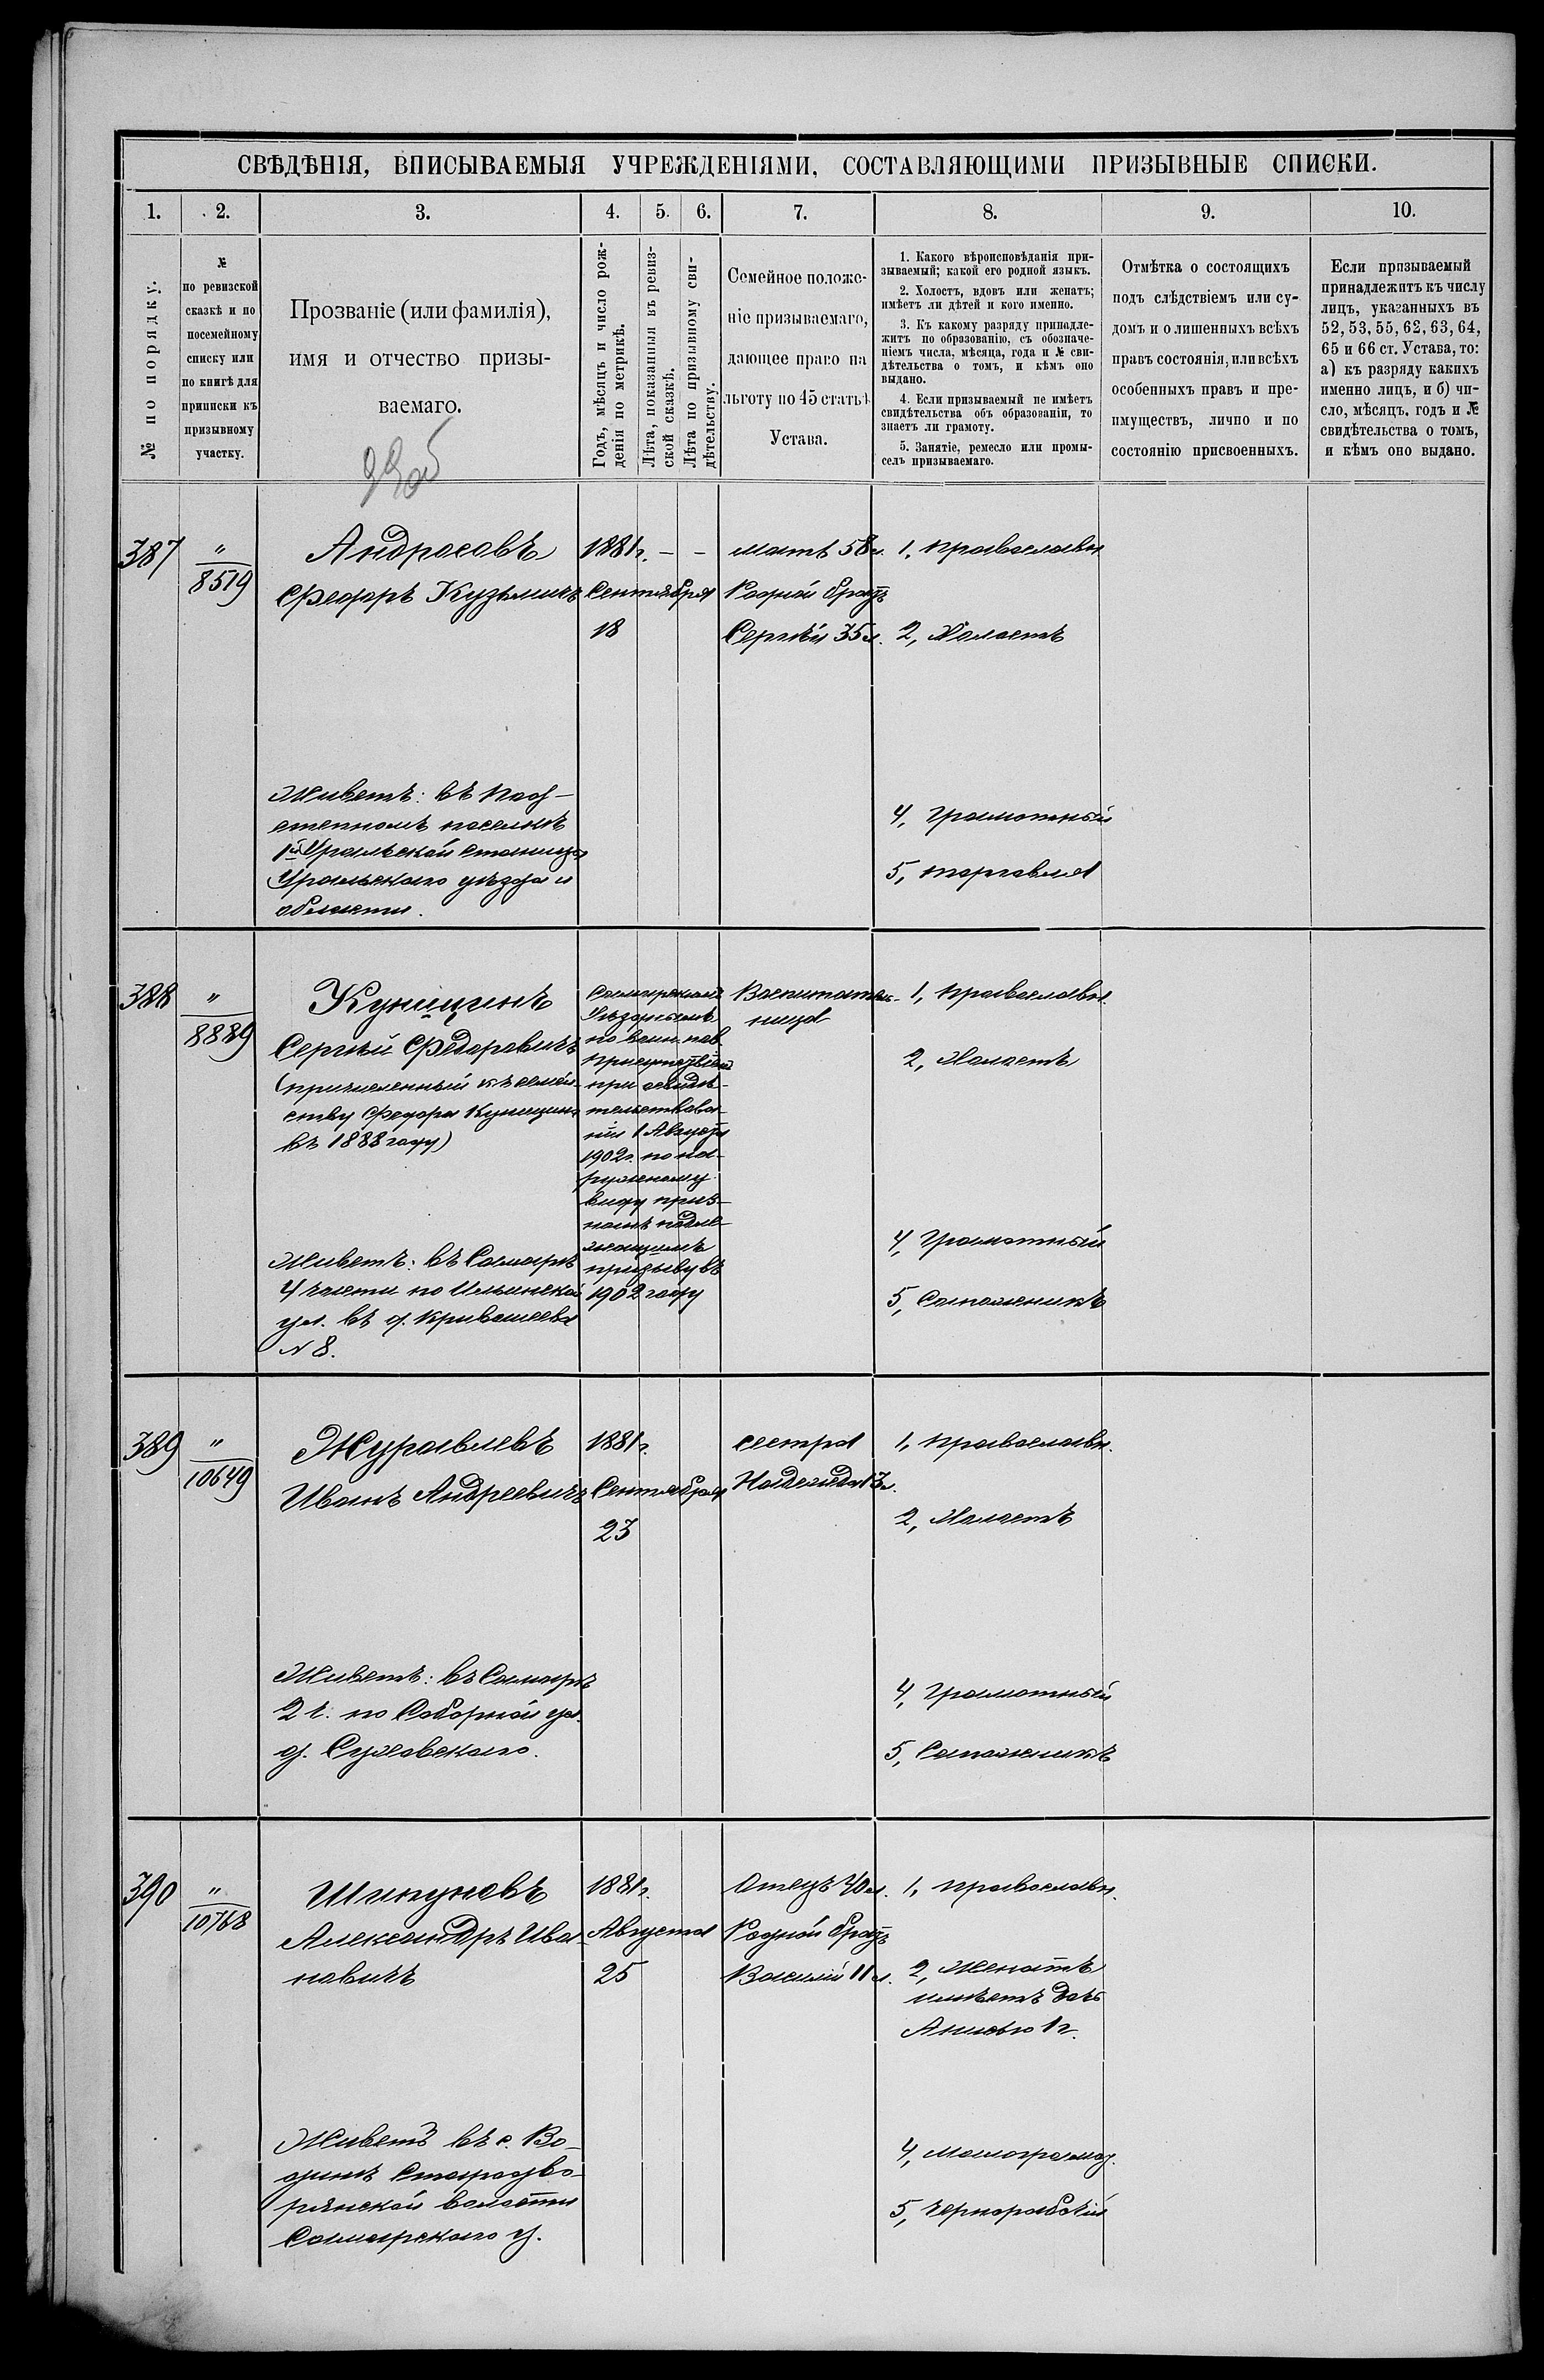 СВѢДѢНІЯ, ВПИСЫВАЕМЫЯ УЧРЕЖДЕНІЯМИ, СОСТАВЛЯЮЩИМИ ПРИЗЫВНЫЕ СПИСКИ.
1. 2. 3. 4. 5. 6. 7. 8. 9. 10.
№ по порядку.
№
по ревизской
сказкѣ и по
посемейному
списку или
по книгѣ для
приписки къ
призывному
участку.
Прозваніе (или фамилія),
имя и отчество призы-
ваемаго.
Годъ, мѣсяцъ и число рож-
денія по метрикѣ.
Лѣта, показанныя въ ревиз-
ской сказкѣ.
Лѣта по призывному сви-
дѣтельству.
Семейное положе-
ніе призываемаго,
дающее право на
льготу по 45 статьѣ
Устава.
1. Какого вѣроисповѣданія при-
зываемый; какой его родной языкъ.
2. Холостъ, вдовъ или женатъ;
имѣетъ ли дѣтей и кого именно.
3. Къ какому разряду принадле-
житъ по образованію, съ обозначе-
ніемъ числа, мѣсяца, года и № сви-
дѣтельства о томъ, и кѣмъ оно
выдано.
4. Если призываемый не имѣетъ
свидѣтельства объ образованіи, то
знаетъ ли грамоту.
5. Занятіе, ремесло или промы-
селъ призываемаго.
Отмѣтка о состоящихъ
подъ слѣдствіемъ или су-
домъ и о лишенныхъ всѣхъ
правъ состоянія, или всѣхъ
особенныхъ правъ и пре-
имуществъ, лично и по
состоянію присвоенныхъ.
Если призываемый
принадлежитъ къ числу
лицъ, указанныхъ въ
52, 53, 55, 62, 63, 64,
65 и 66 ст. Устава, то:
а) къ разряду какихъ
именно лицъ, и б) чи-
сло, мѣсяцъ, годъ и №
свидѣтельства о томъ,
и кѣмъ оно выдано.
387
"
8519
Андросовъ
Федоръ Кузьмичъ
Живетъ: въ
поселкѣ
1й Уральской станицы
Уральскаго уѣзда и
области.
1881г. – –
Сентября
18
мать 58л.
Родной братъ
Сергѣй 35л.
1, Православн.
2, Холостъ
4, Грамотный
5, торговля
388
"
8889
Купицинъ
Сергѣй Федоровичъ
(причисленный къ семей-
ству Федора Купицина
въ 1888 году)
Живетъ: въ Самарѣ
4 части по Ильинской
ул. въ д. Кривошеева
№ 8.
Самарскимъ
Уѣзднымъ
по воин. пов.
Присутствіемъ
при освидѣ-
тельствова-
ніи 1 Августа
1902г. по на-
ружному
виду приз-
нанъ подле-
жащимъ
призыву въ
1902 году
Воспитатель-
ница
1, Православн.
2, Холостъ
4, Грамотный
5, Сапожникъ
389
"
10649
Журавлевъ
Иванъ Андреевичъ
Живетъ: въ Самарѣ
2 ч. по Соборной ул.
д. Сужовскаго.
1881г.
Сентября
23
сестра
Надежда 13л.
1, Православн.
2, Холостъ
4, Грамотный
5, Сапожникъ
390
"
10768
Шипуновъ
Александръ Ива-
новичъ
Живетъ въ с. Во-
динѣ Стародво-
рянской волости
Самарскаго у.
1881г.
Августа
25
Отецъ 40л.
Родной братъ
Василій 11л.
1, Православн.
2, Женатъ
имѣетъ дочь
1г.
4, Малограмот.
5, Чернорабочій